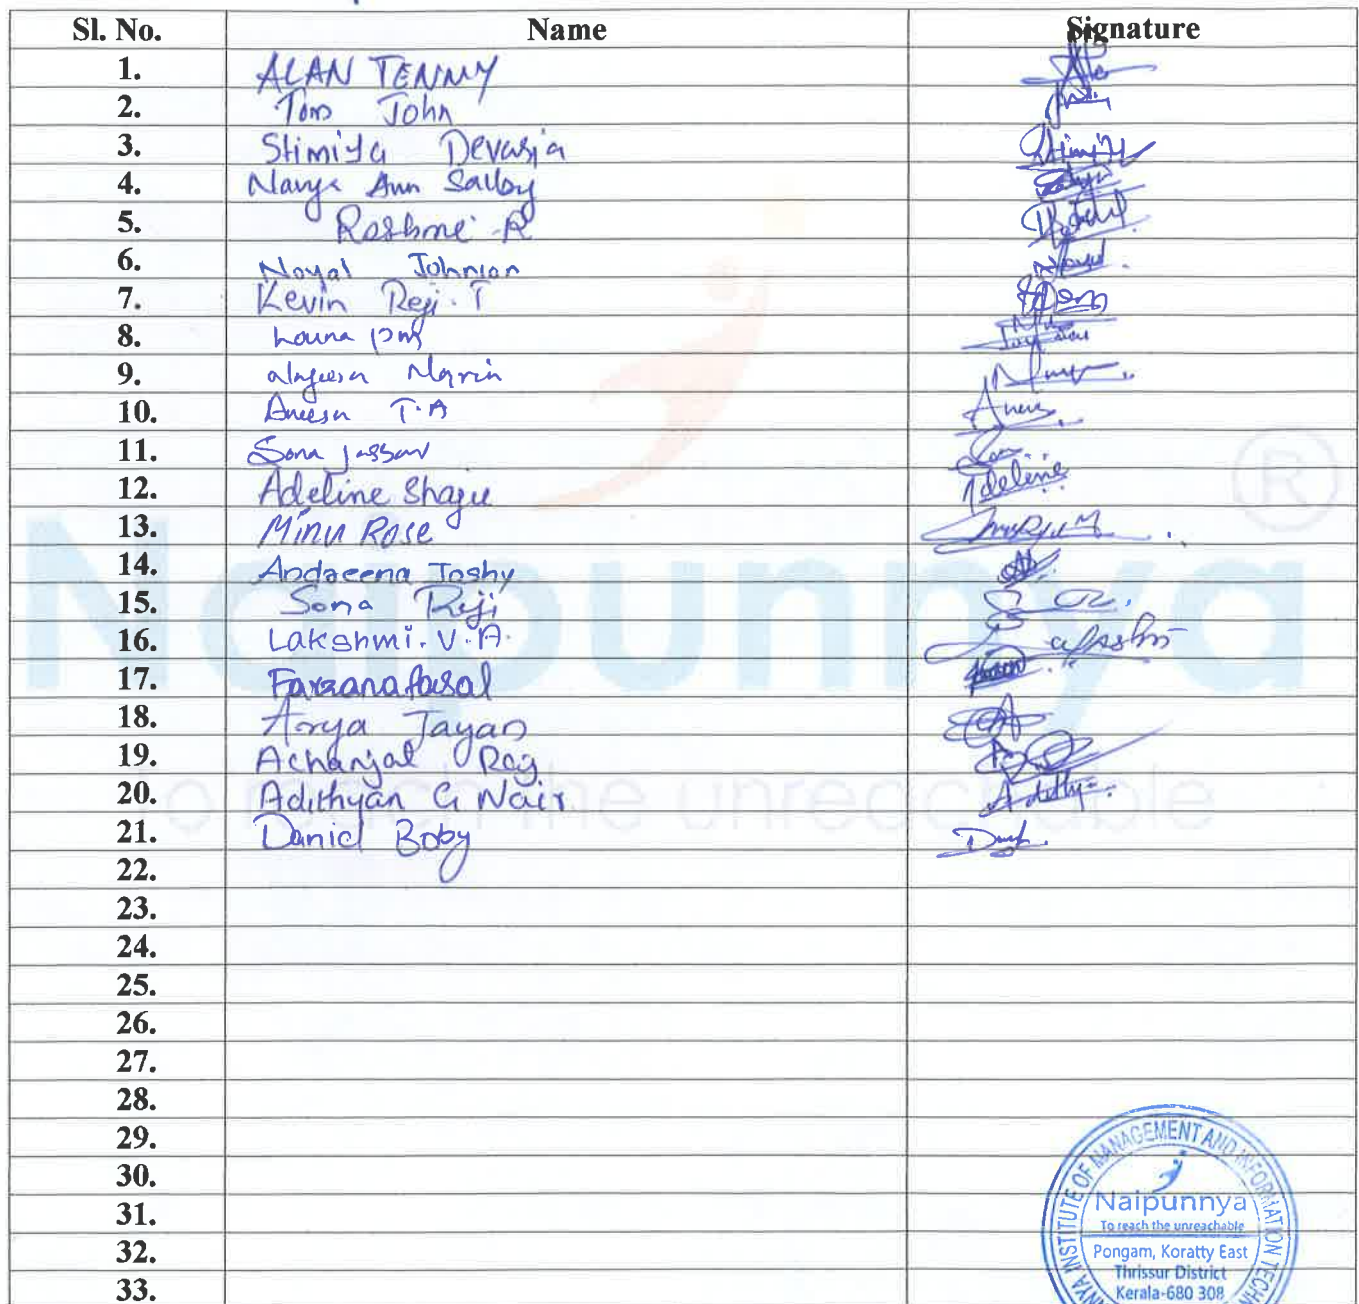 Sl. No. Name Signature
1. ALAN TENNY
2. Tom John
3. Stimiya Devasia
4. Navya Ann Sabby
5. Reshme R
6. Noyal Johnson
7. Kevin Reji. T
8.
9. Marin
10. Aneesa T.A
11. Sona
12. Adeline Shaju Adeline
13. Minu Rose
14. Andreena Joshy
15. Sona Reji
16. Lakshmi. V. A.
17. Farsana faisal
18. Arya Jayan
19. Achanjal Raj
20. Adithyan G Nair.
21. Daniel Boby
22.
23.
24.
25.
26.
27.
28.
29.
30.
31.
32.
33.
Naipunnya
To reach the unreachable
®
NAIPUNNYA INSTITUTE OF MANAGEMENT AND INFORMATION TECHN
Naipunnya
To reach the unreachable
Pongam, Koratty East
Thrissur District
Kerala-680 308